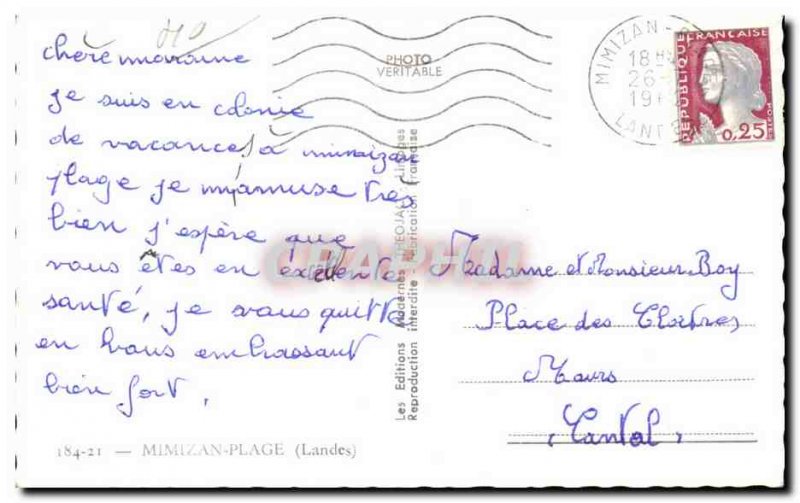 chère marraine
je suis en colonie
de vacances à mimizan
plage je m'amuse très
bien j'espère que
vous êtes en excellente
santé, je vous quitte
en vous embrassant
bien fort,
184-21 — MIMIZAN-PLAGE (Landes)
PHOTO
VERITABLE
Les Editions Modernes THEOJAC Limoges
Reproduction interdite - Fabrication Française
MIMIZAN
18H
26
19
LANDES
REPUBLIQUE FRANÇAISE
0,25
Madame et Monsieur Boy
Place des Cloîtres
Maurs
Cantal